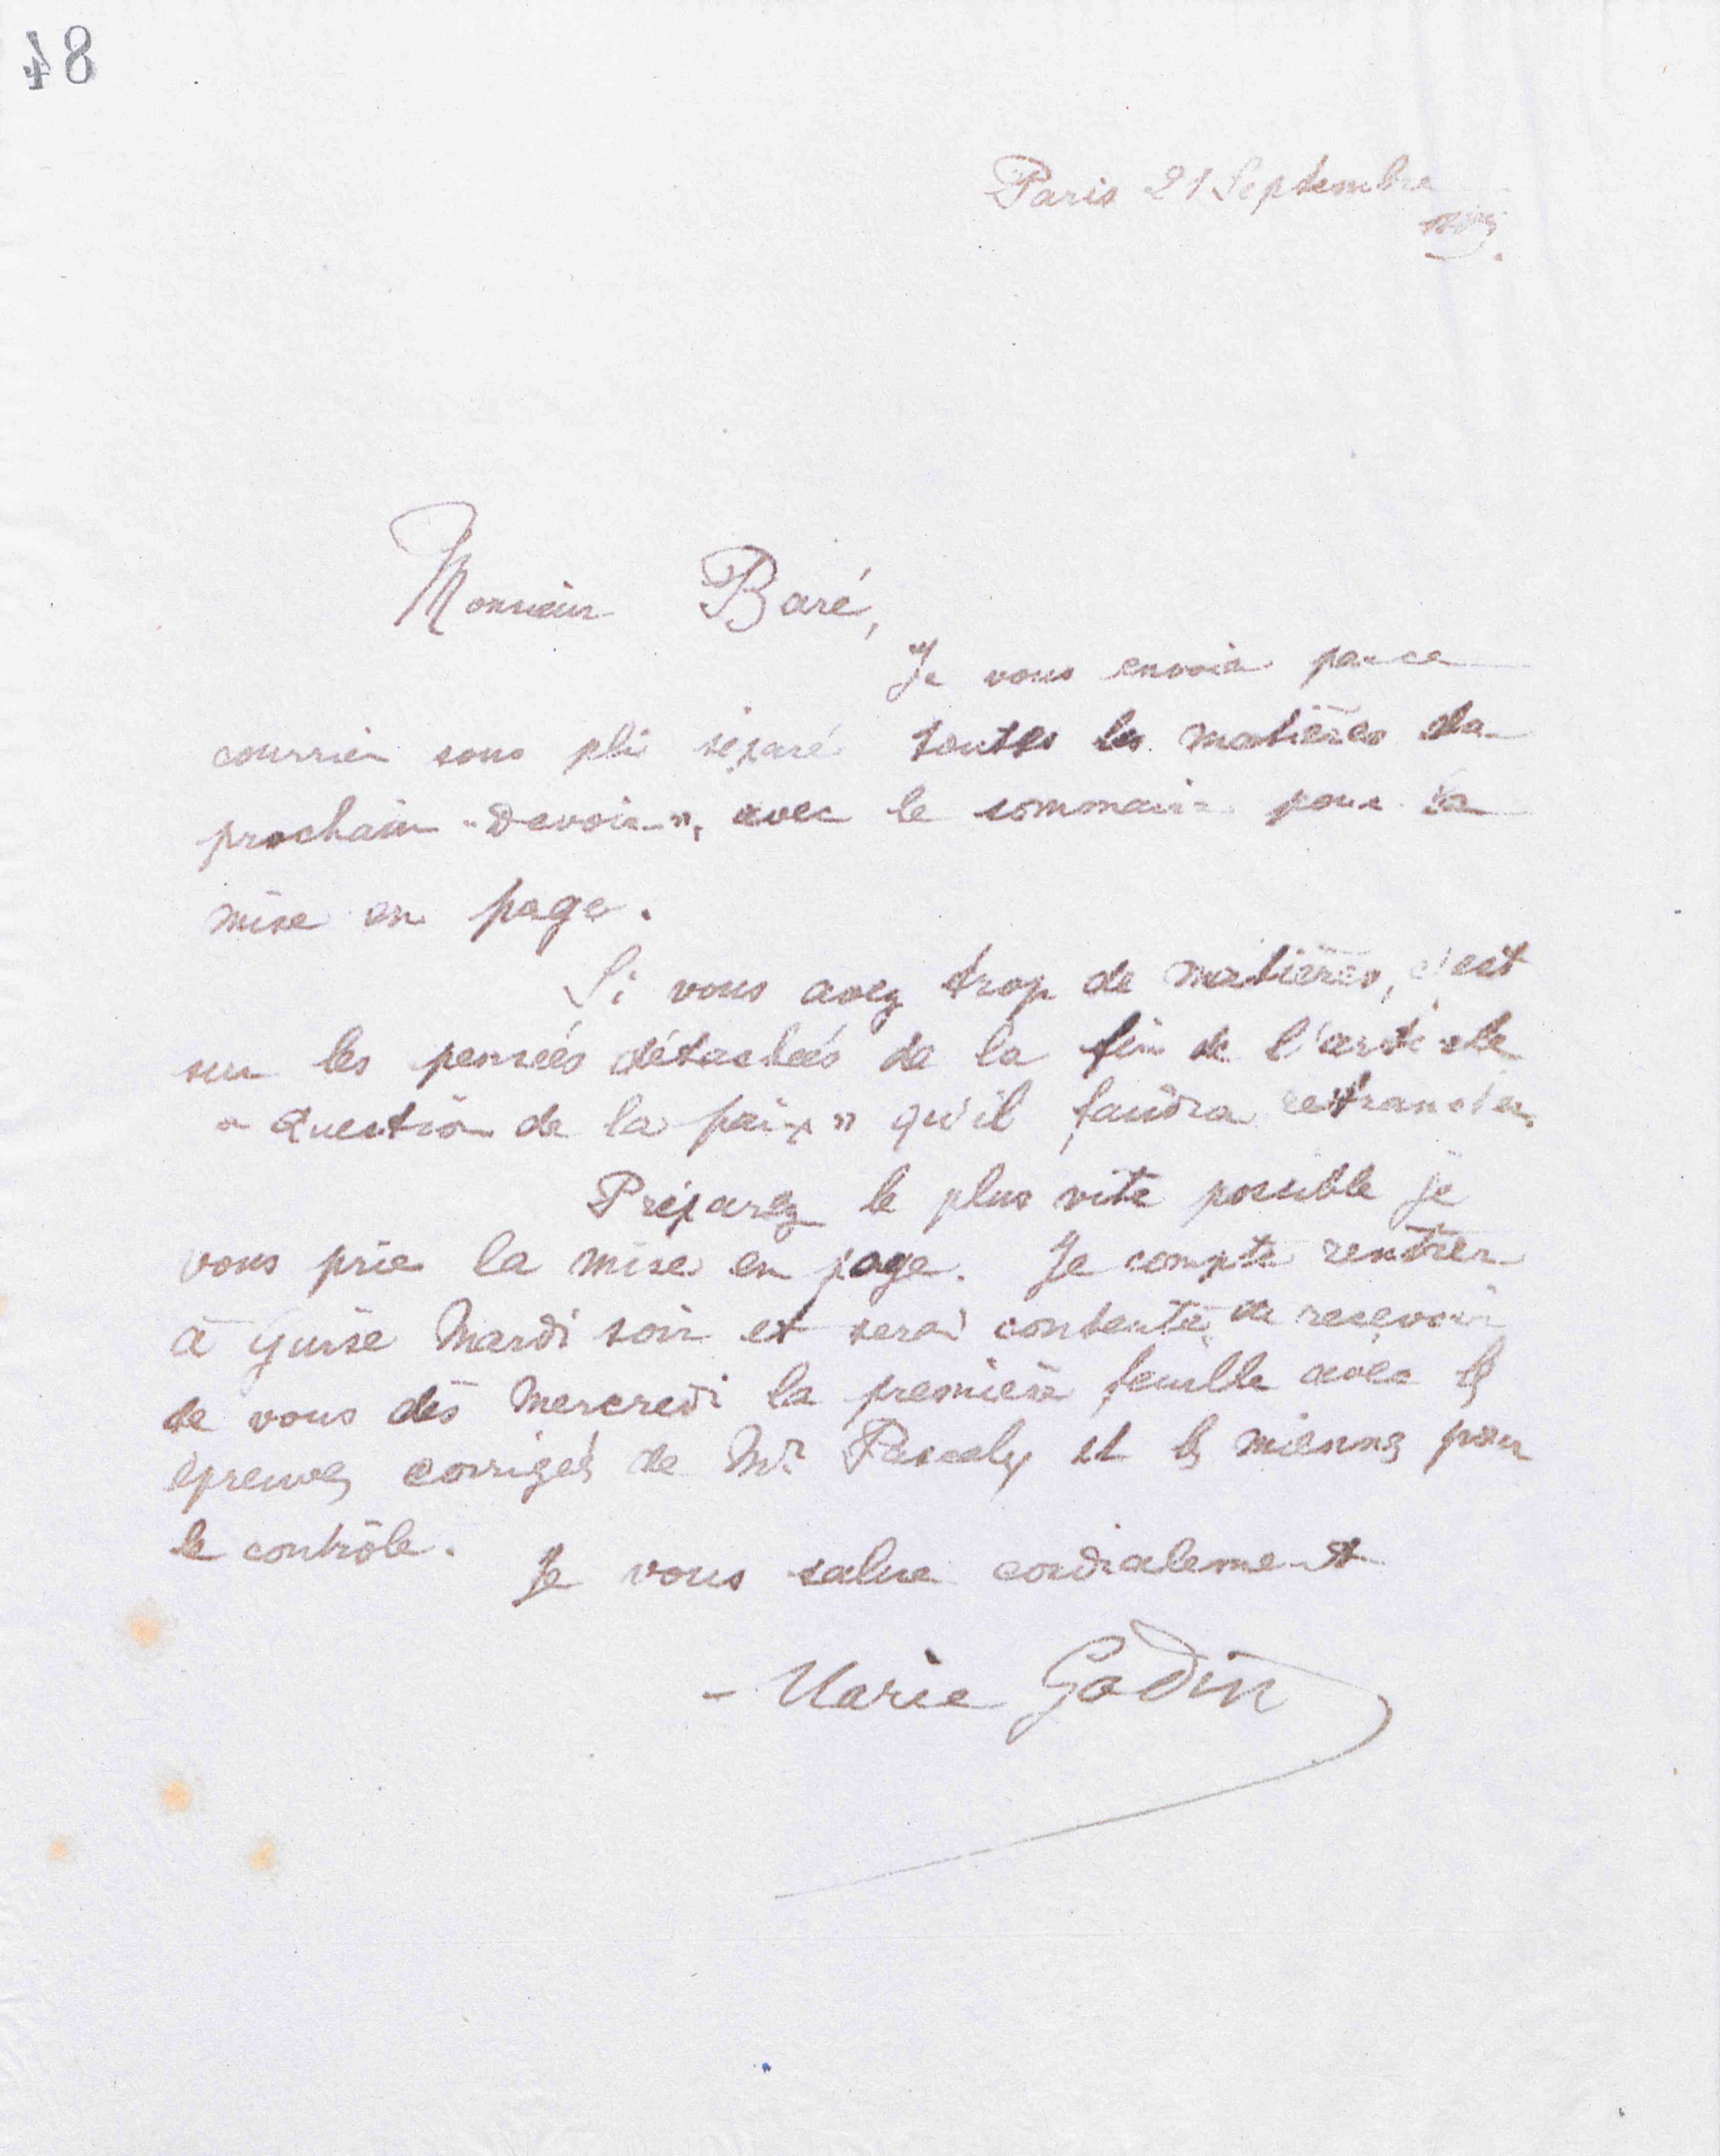 48
Paris 21 Septembre
Monsieur Baré,
Je vous envoie par ce
courrier sous pli séparé toutes les matières du
prochain "Devoir", avec le sommaire pour la
mise en page.
Si vous avez trop de matières, c'est
sur les pensées détachées de la fin de l'article
"Question de la paix" qu'il faudra retrancher.
Préparez le plus vite possible je
vous prie la mise en page. Je compte rentrer
à Guise Mardi soir et serai contente de recevoir
de vous dès Mercredi la première feuille avec les
épreuves corrigées de Mr Pascaly et les miennes pour
le contrôle.
Je vous salue cordialement
Marie Godin